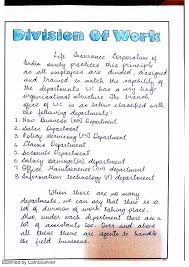 Division Of Work
Life Insurance Corporation of
India surely practices this principle
as all employees are divided, assigned
and trained to match the capability of
the departments. LIC has a very huge
organisational structure. The branch
office of LIC is as below classified with
the following departments:
1. New Business (NB) Department
2. Sales Department
3. Policy Servicing (PS) department
4. Claims Department
5. Accounts Department
6. Salary Savings department
7. Office Management (OM) department
8. Information Technology (IT) department
When there are so many
departments, we can say that there is a
lot of division of work taking place.
Also, under each department there are a
lot of assistants too. Over and above
all these there are agents to handle
the field business.
Scanned by CamScanner